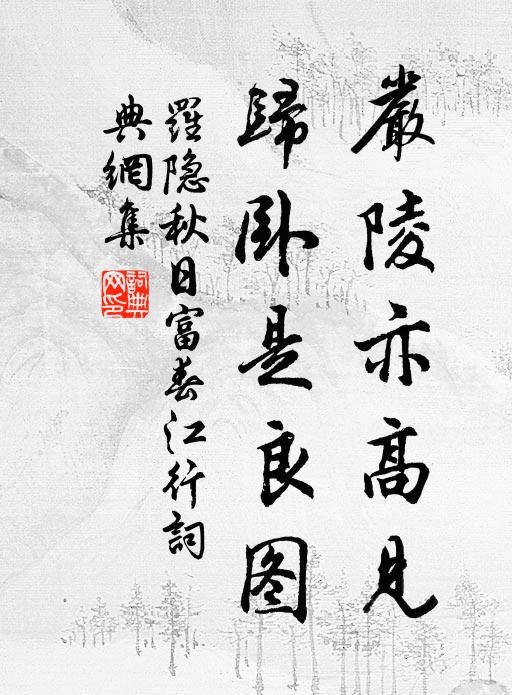 嚴陵亦高見
歸卧是良图
羅隐秋日富春江行詞
典網集
詞典
网印